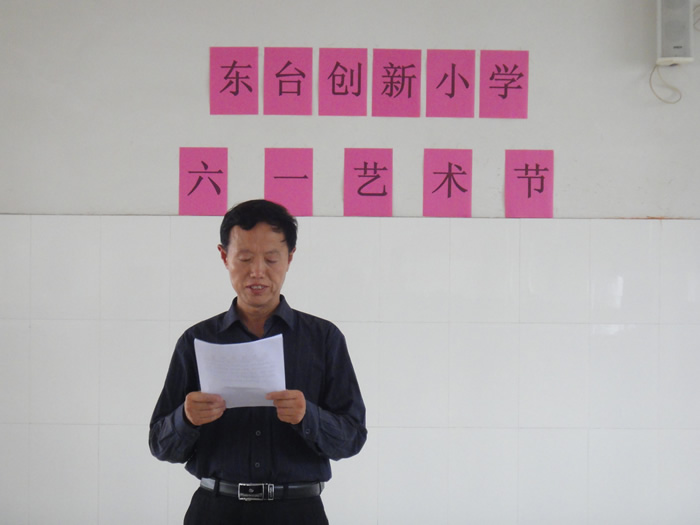 东台创新小学
六一艺术节